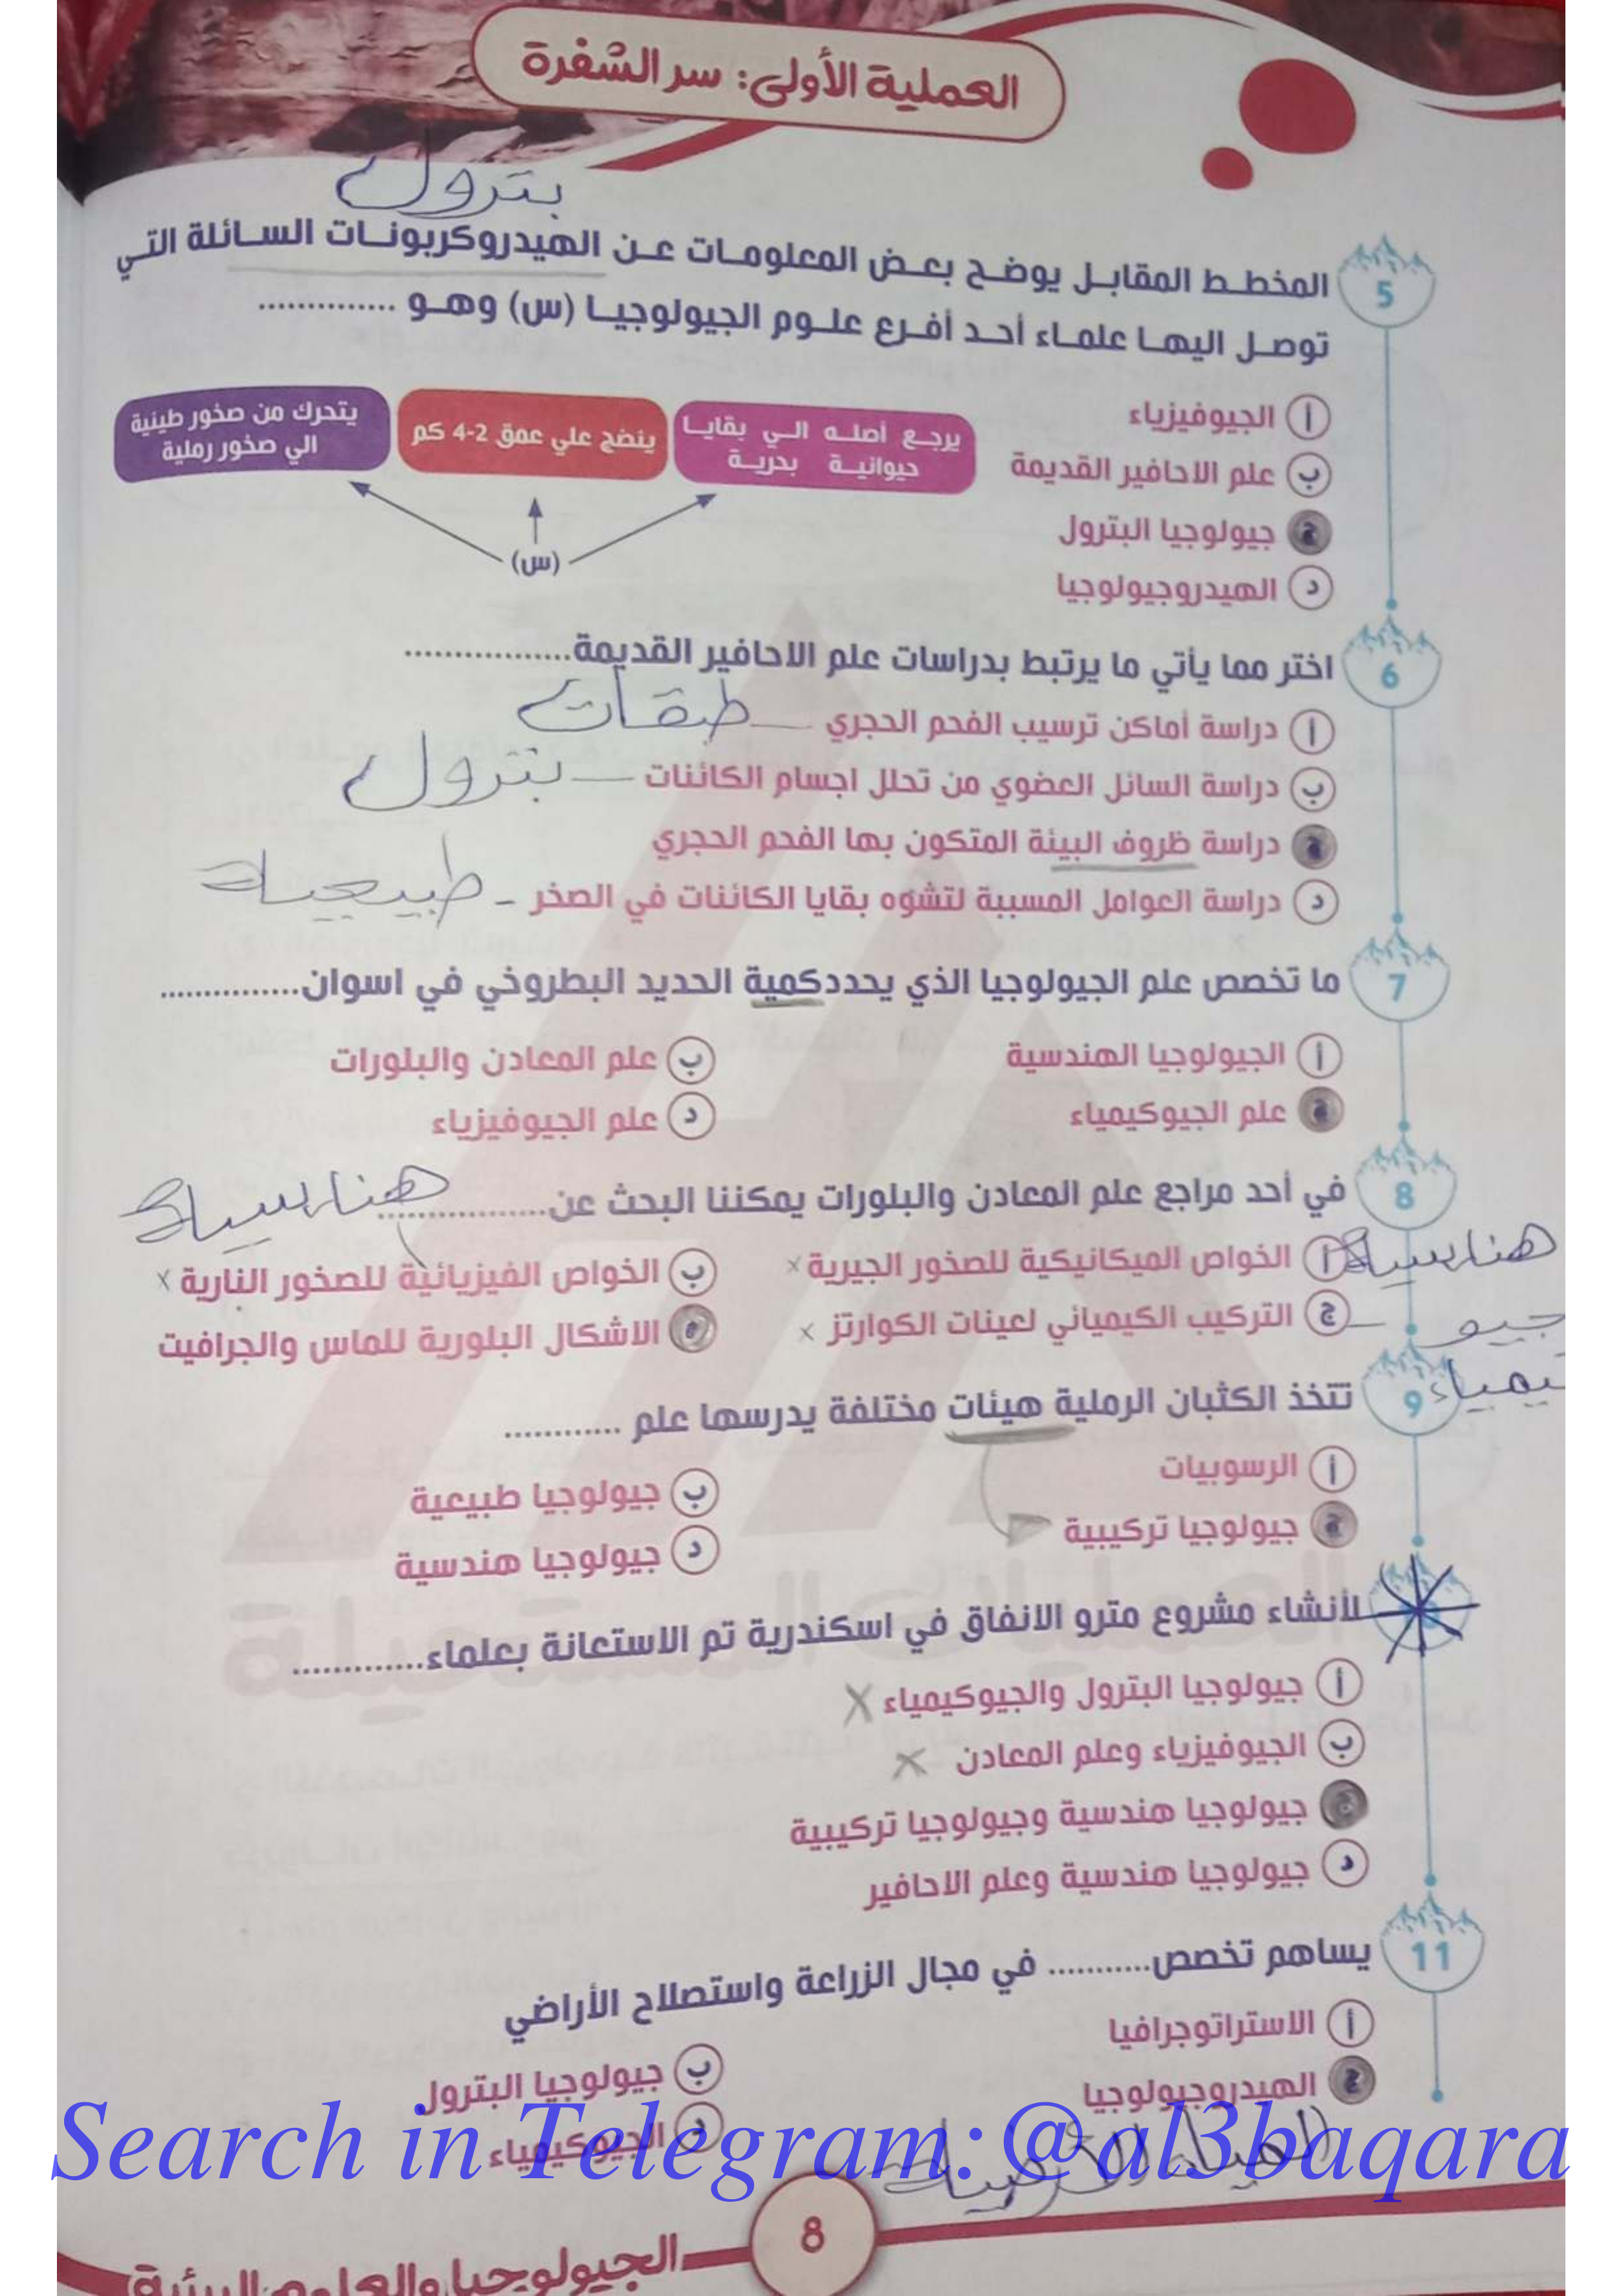 العملية الأولى: سر الشفرة
بترول
5 المخطط المقابل يوضح بعض المعلومات عن الهيدروكربونات السائلة التي
توصل اليها علماء أحد أفرع علوم الجيولوجيا (س) وهو ..............
أ الجيوفيزياء
ب علم الاحافير القديمة
ج جيولوجيا البترول
د الهيدروجيولوجيا
يرجع أصله الي بقايا
حيوانية بحرية
ينضج علي عمق 2-4 كم
يتحرك من صخور طينية
الي صخور رملية
(س)
6 اختر مما يأتي ما يرتبط بدراسات علم الاحافير القديمة.................
أ دراسة أماكن ترسيب الفحم الحجري – طبقات
ب دراسة السائل العضوي من تحلل اجسام الكائنات – بترول
ج دراسة ظروف البيئة المتكون بها الفحم الحجري
د دراسة العوامل المسببة لتشوه بقايا الكائنات في الصخر - طبيعية
7 ما تخصص علم الجيولوجيا الذي يحددكمية الحديد البطروخي في اسوان...............
أ الجيولوجيا الهندسية
ب علم المعادن والبلورات
ج علم الجيوكيمياء
د علم الجيوفيزياء
8 في أحد مراجع علم المعادن والبلورات يمكننا البحث عن.................
هندسية
هندسية
أ الخواص الميكانيكية للصخور الجيرية x
ب الخواص الفيزيائية للصخور النارية x
ج التركيب الكيميائي لعينات الكوارتز x
جيو
يمياء
د الاشكال البلورية للماس والجرافيت
9 تتخذ الكثبان الرملية هيئات مختلفة يدرسها علم ............
أ الرسوبيات
ب جيولوجيا طبيعية
ج جيولوجيا تركيبية
د جيولوجيا هندسية
لأنشاء مشروع مترو الانفاق في اسكندرية تم الاستعانة بعلماء.............
أ جيولوجيا البترول والجيوكيمياء X
ب الجيوفيزياء وعلم المعادن X
ج جيولوجيا هندسية وجيولوجيا تركيبية
د جيولوجيا هندسية وعلم الاحافير
11 يساهم تخصص........... في مجال الزراعة واستصلاح الأراضي
أ الاستراتوجرافيا
ب جيولوجيا البترول
ج الهيدروجيولوجيا
د الجيوكيمياء
المياه الأرضية
Search in Telegram:@al3baqara
8
الجيولوجيا والعلوم البيئية